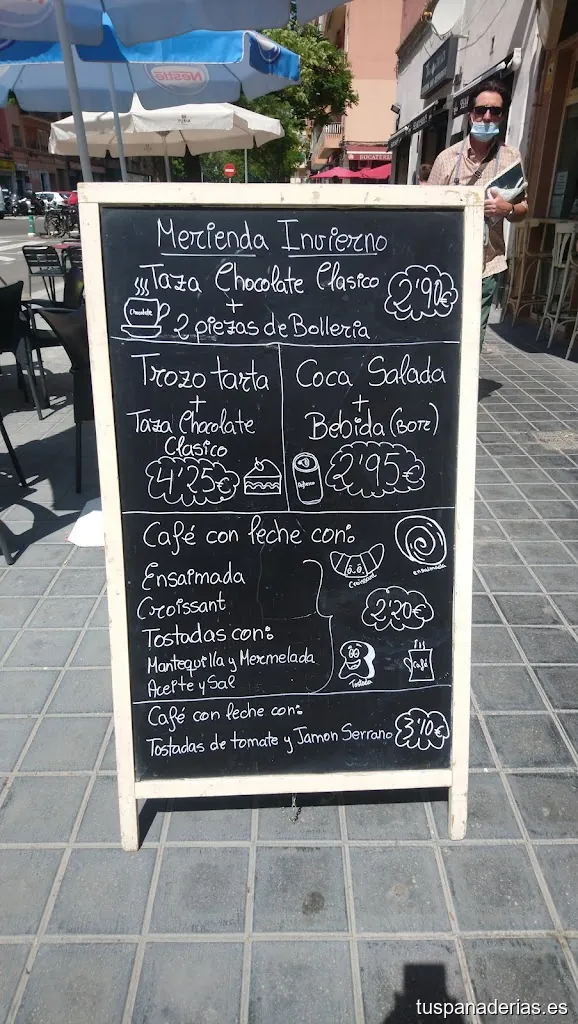 Nestlé
BOCATE
Merienda Invierno
Taza Chocolate Clasico
+
2 piezas de Bolleria
2'90€
Chocolate
Trozo tarta
+
Taza Chocolate
Clasico
4'25€
Coca Salada
+
Bebida (BOTE)
2'95€
Café con leche con:
Ensaimada
Croissant
Tostadas con:
Mantequilla y Mermelada
Aceite y Sal
Croissant
ensaimada
2'20€
Tostada
Café
Café con leche con:
Tostadas de tomate y Jamon Serrano
3'10€
tuspanaderias.es